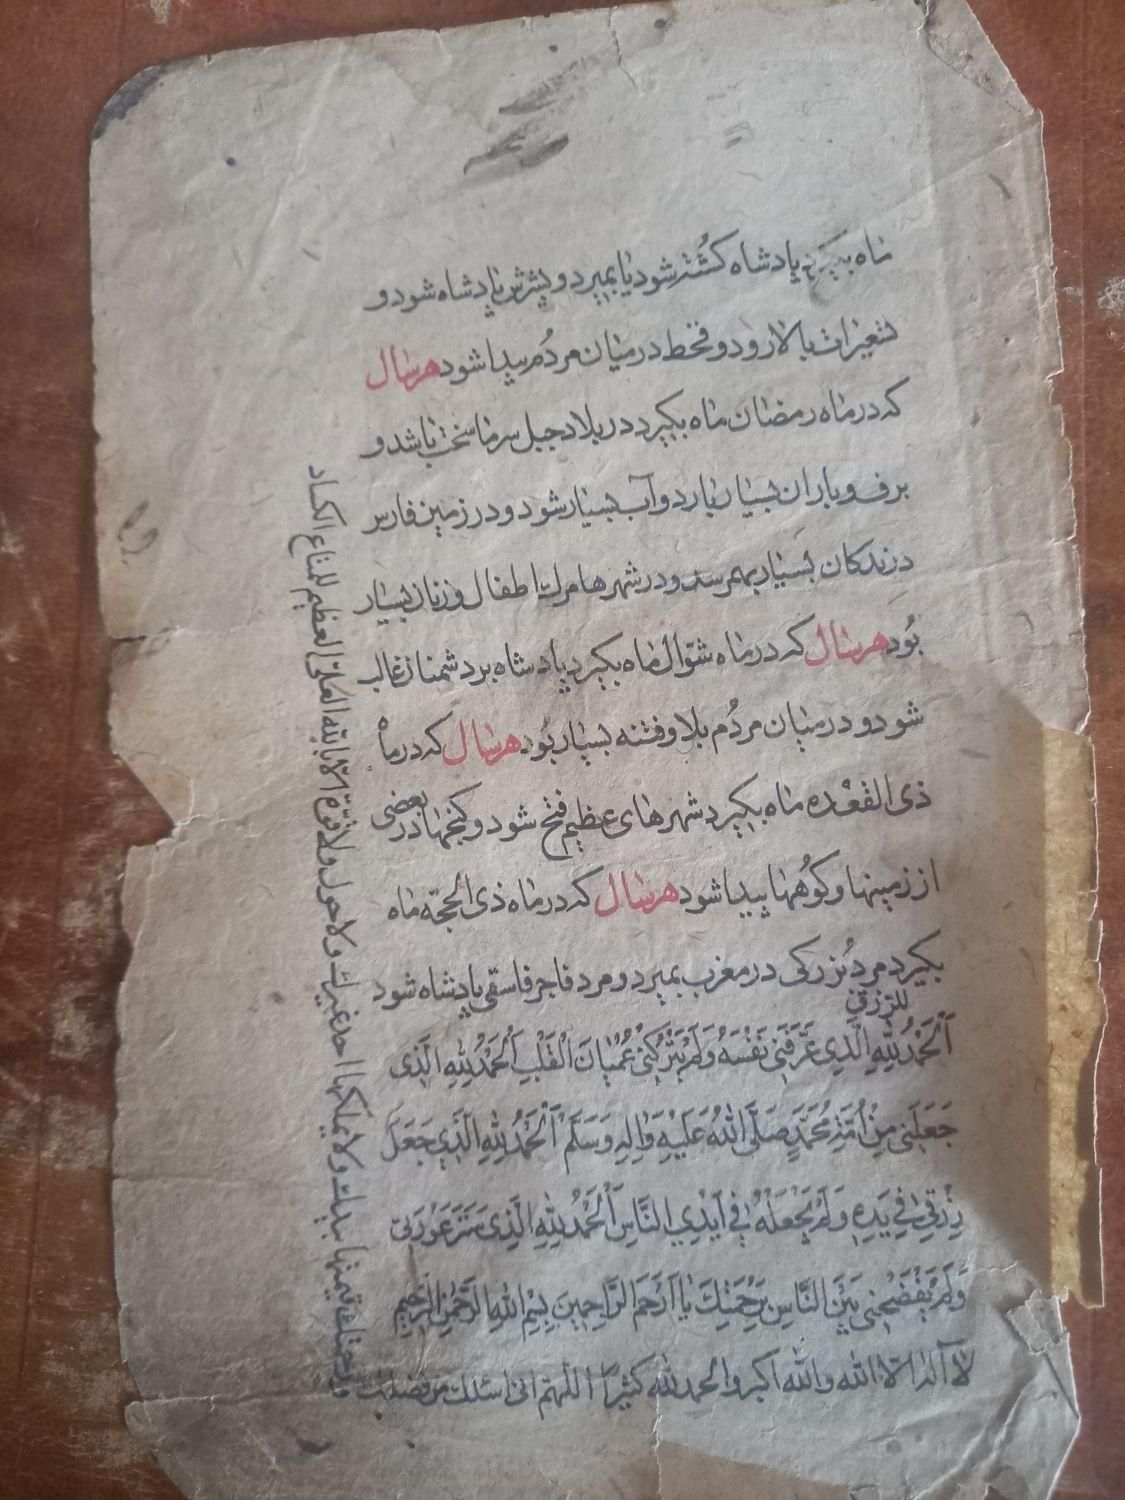 ماه بگیرد پادشاه کشته شود یا بمیرد و پسرش پادشاه شود و
تغیرات بالا رود و قحط در میان مردُم پیدا شود هر سال
که در ماه رمضان ماه بگیرد در بلاد جبل سرما سخت باشد و
برف و باران بسیار بارد و آب بسیار شود و در زمین فارس
درندکان بسیار بهم رسد و در شهرها مرك اطفال و زنان بسیار
بُود هر سال که در ماه شوّال ماه بگیرد پادشاه بر دشمنان غالب
شود و در میان مردُم بلا و فتنه بسیار بُود هر سال که در ماه
ذی القَعْده ماه بگیرد شهرهای عظیم فتح شود و کنجها در بعضی
از زمینها و کوُهها پیدا شود هر سال که در ماه ذی الحجّه ماه
بگیرد مرد بُزرکی در مغرب بمیرد و مرد فاجر فاسقی پادشاه شود
للرّزق
اَلْحَمْدُ لِلّهِ الَّذِی عَرَّفَنِی نَفْسَهُ وَلَمْ یَتْرُكْنِی عُمْیانَ الْقَلْبِ اَلْحَمْدُ لِلّهِ الَّذِی
جَعَلَنِی مِنْ اُمَّةِ مُحَمَّدٍ صَلَّی اللّهُ عَلَیْهِ وَالِهِ وَسَلَّمْ اَلْحَمْدُ لِلّهِ الَّذِی جَعَلَ
رِزْقِی فِی یَدِهِ وَلَمْ یَجْعَلْهُ فِی اَیْدِی النَّاسِ اَلْحَمْدُ لِلّهِ الَّذِی سَتَرَ عَوْرَتِی
وَلَمْ یَفْضَحْنِی بَیْنَ النَّاسِ بِرَحْمَتِكَ یا اَرْحَمَ الرَّاحِمِینَ بِسْمِ اللّهِ الرَّحْمنِ الرَّحِیمِ
لا آله الّا اللّه واللّه اکبر والحمد للّه کثیراً اللّهمّ انّی اسئلك من فضلك
ورحمتك فیمنها بیدك ولا یملکها احد غیرك ولا حول ولا قوّة الّا باللّه العلیّ العظیم للمتاع الکساد